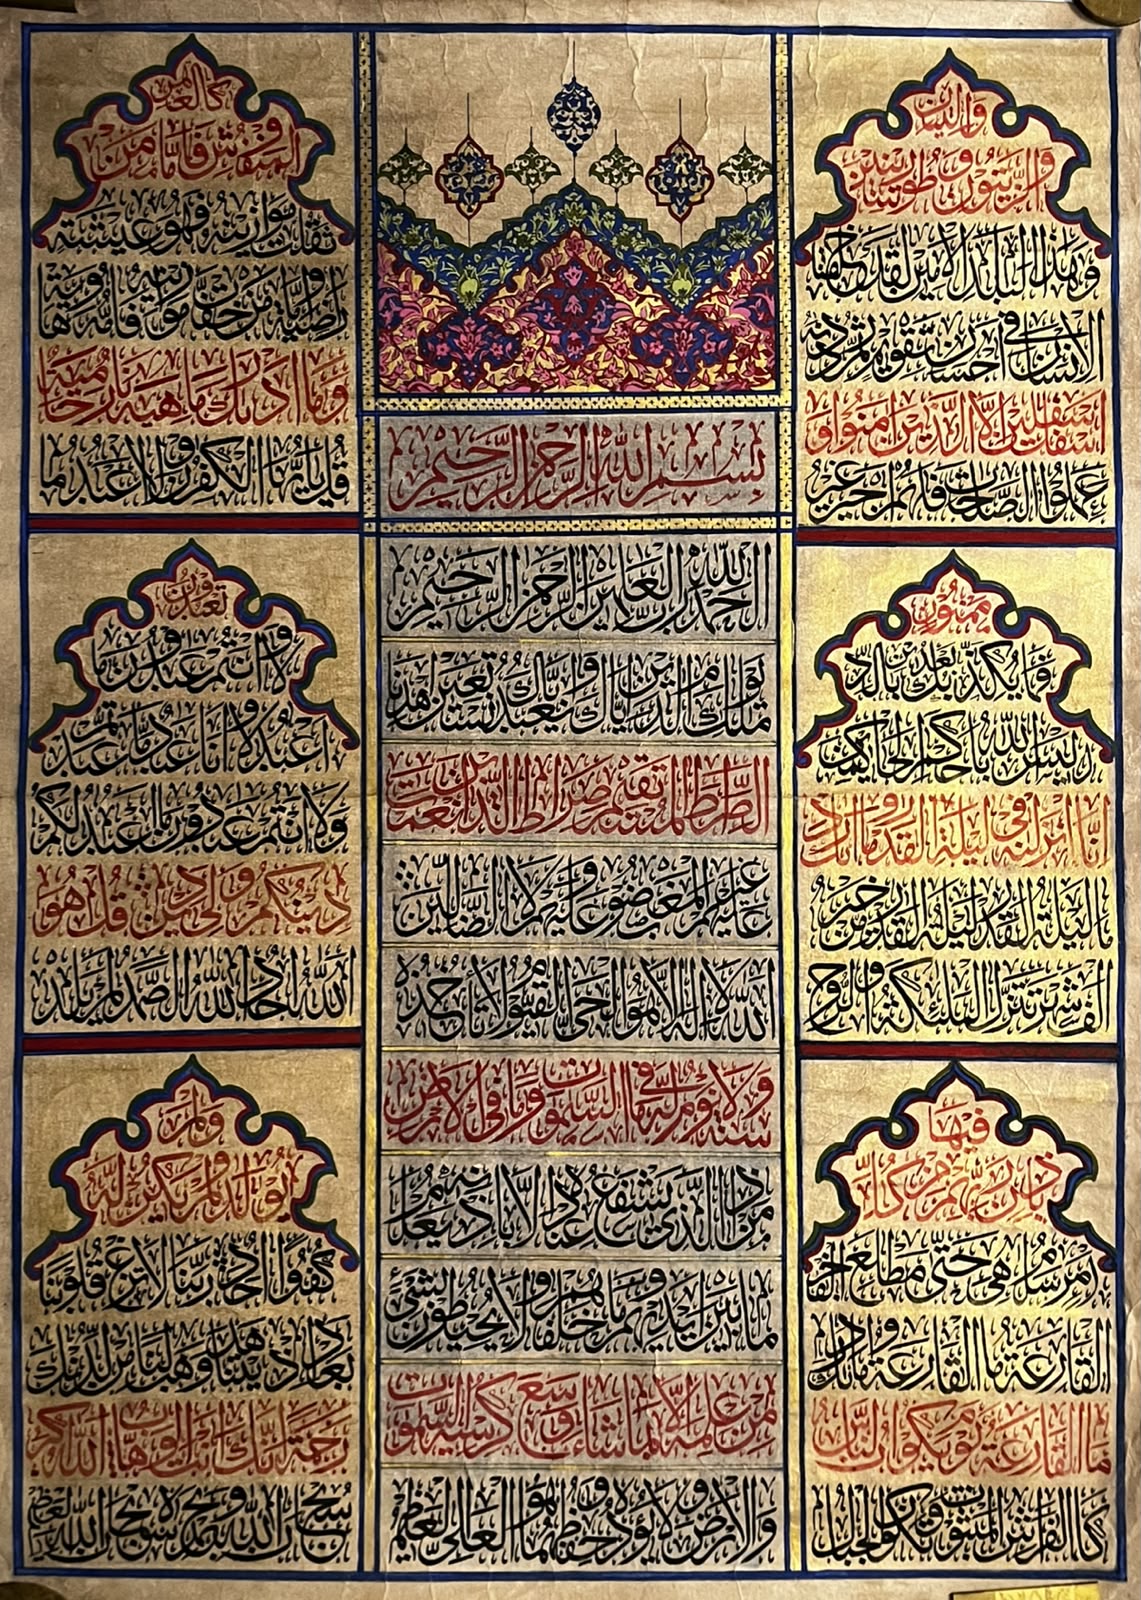 بسم الله الرحمن الرحيم
الحمد لله رب العلمين الرحمن الرحيم
ملك يوم الدين اياك نعبد واياك نستعين اهدنا
الصراط المستقيم صراط الذين انعمت
عليهم غير المغضوب عليهم ولا الضالين
الله لا اله الا هو الحي القيوم لا تاخذه
سنة ولا نوم له ما في السموت وما في الارض
من ذا الذي يشفع عنده الا باذنه يعلم
ما بين ايديهم وما خلفهم ولا يحيطون بشيء
من علمه الا بما شاء وسع كرسيه السموت
والارض ولا يوده حفظهما وهو العلي العظيم
والتين
والزيتون وطور سينين
وهذا البلد الامين لقد خلقنا
الانسان في احسن تقويم ثم رددنه
اسفل سافلين الا الذين امنوا و
عملوا الصلحت فلهم اجر غير
ممنون
فما يكذبك بعد بالد
ين اليس الله باحكم الحكمين
انا انزلنه في ليلة القدر وما ادراك
ما ليلة القدر ليلة القدر خير من
الف شهر تنزل الملئكة والروح
فيها
باذن ربهم من كل
امر سلم هي حتى مطلع الفجر
القارعة ما القارعة وما ادرىك
ما القارعة يوم يكون الناس
كالفراش المبثوث وتكون الجبال
كالعهن
المنفوش فاما من
ثقلت موازينه فهو في عيشة
راضية واما من خفت موازينه فامه هاوية
وما ادرىك ما هيه نار حامية
قل يا ايها الكفرون لا اعبد ما
تعبدون
ولا انتم عبدون ما
اعبد ولا انا عابد ما عبدتم
ولا انتم عبدون ما اعبد لكم
دينكم ولي دين قل هو
الله احد الله الصمد لم يلد
ولم
يولد ولم يكن له
كفوا احد ربنا لا تزغ قلوبنا
بعد اذ هديتنا وهب لنا من لدنك
رحمة انك انت الوهاب الله اكبر
سبحان الله وبحمده سبحان الله العظيم